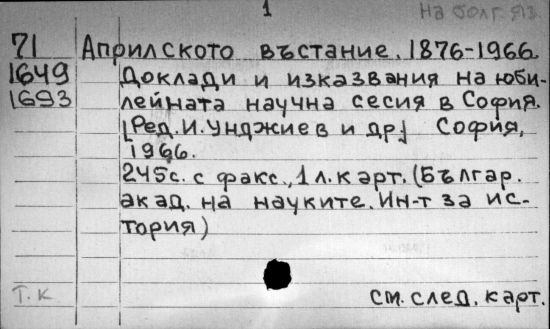 1
На болг. яз.
71 Априлското въстание. 1876-1966.
1649 Доклади и изказвания на юби-
1693 лейната научна сесия в София.
[Ред. И. Унджиев и др.] София,
1966.
245с. с факс., 1 л. карт. (Българ.
акад. на науките. Ин-т за ис-
тория)
Т. К
см. след. карт.